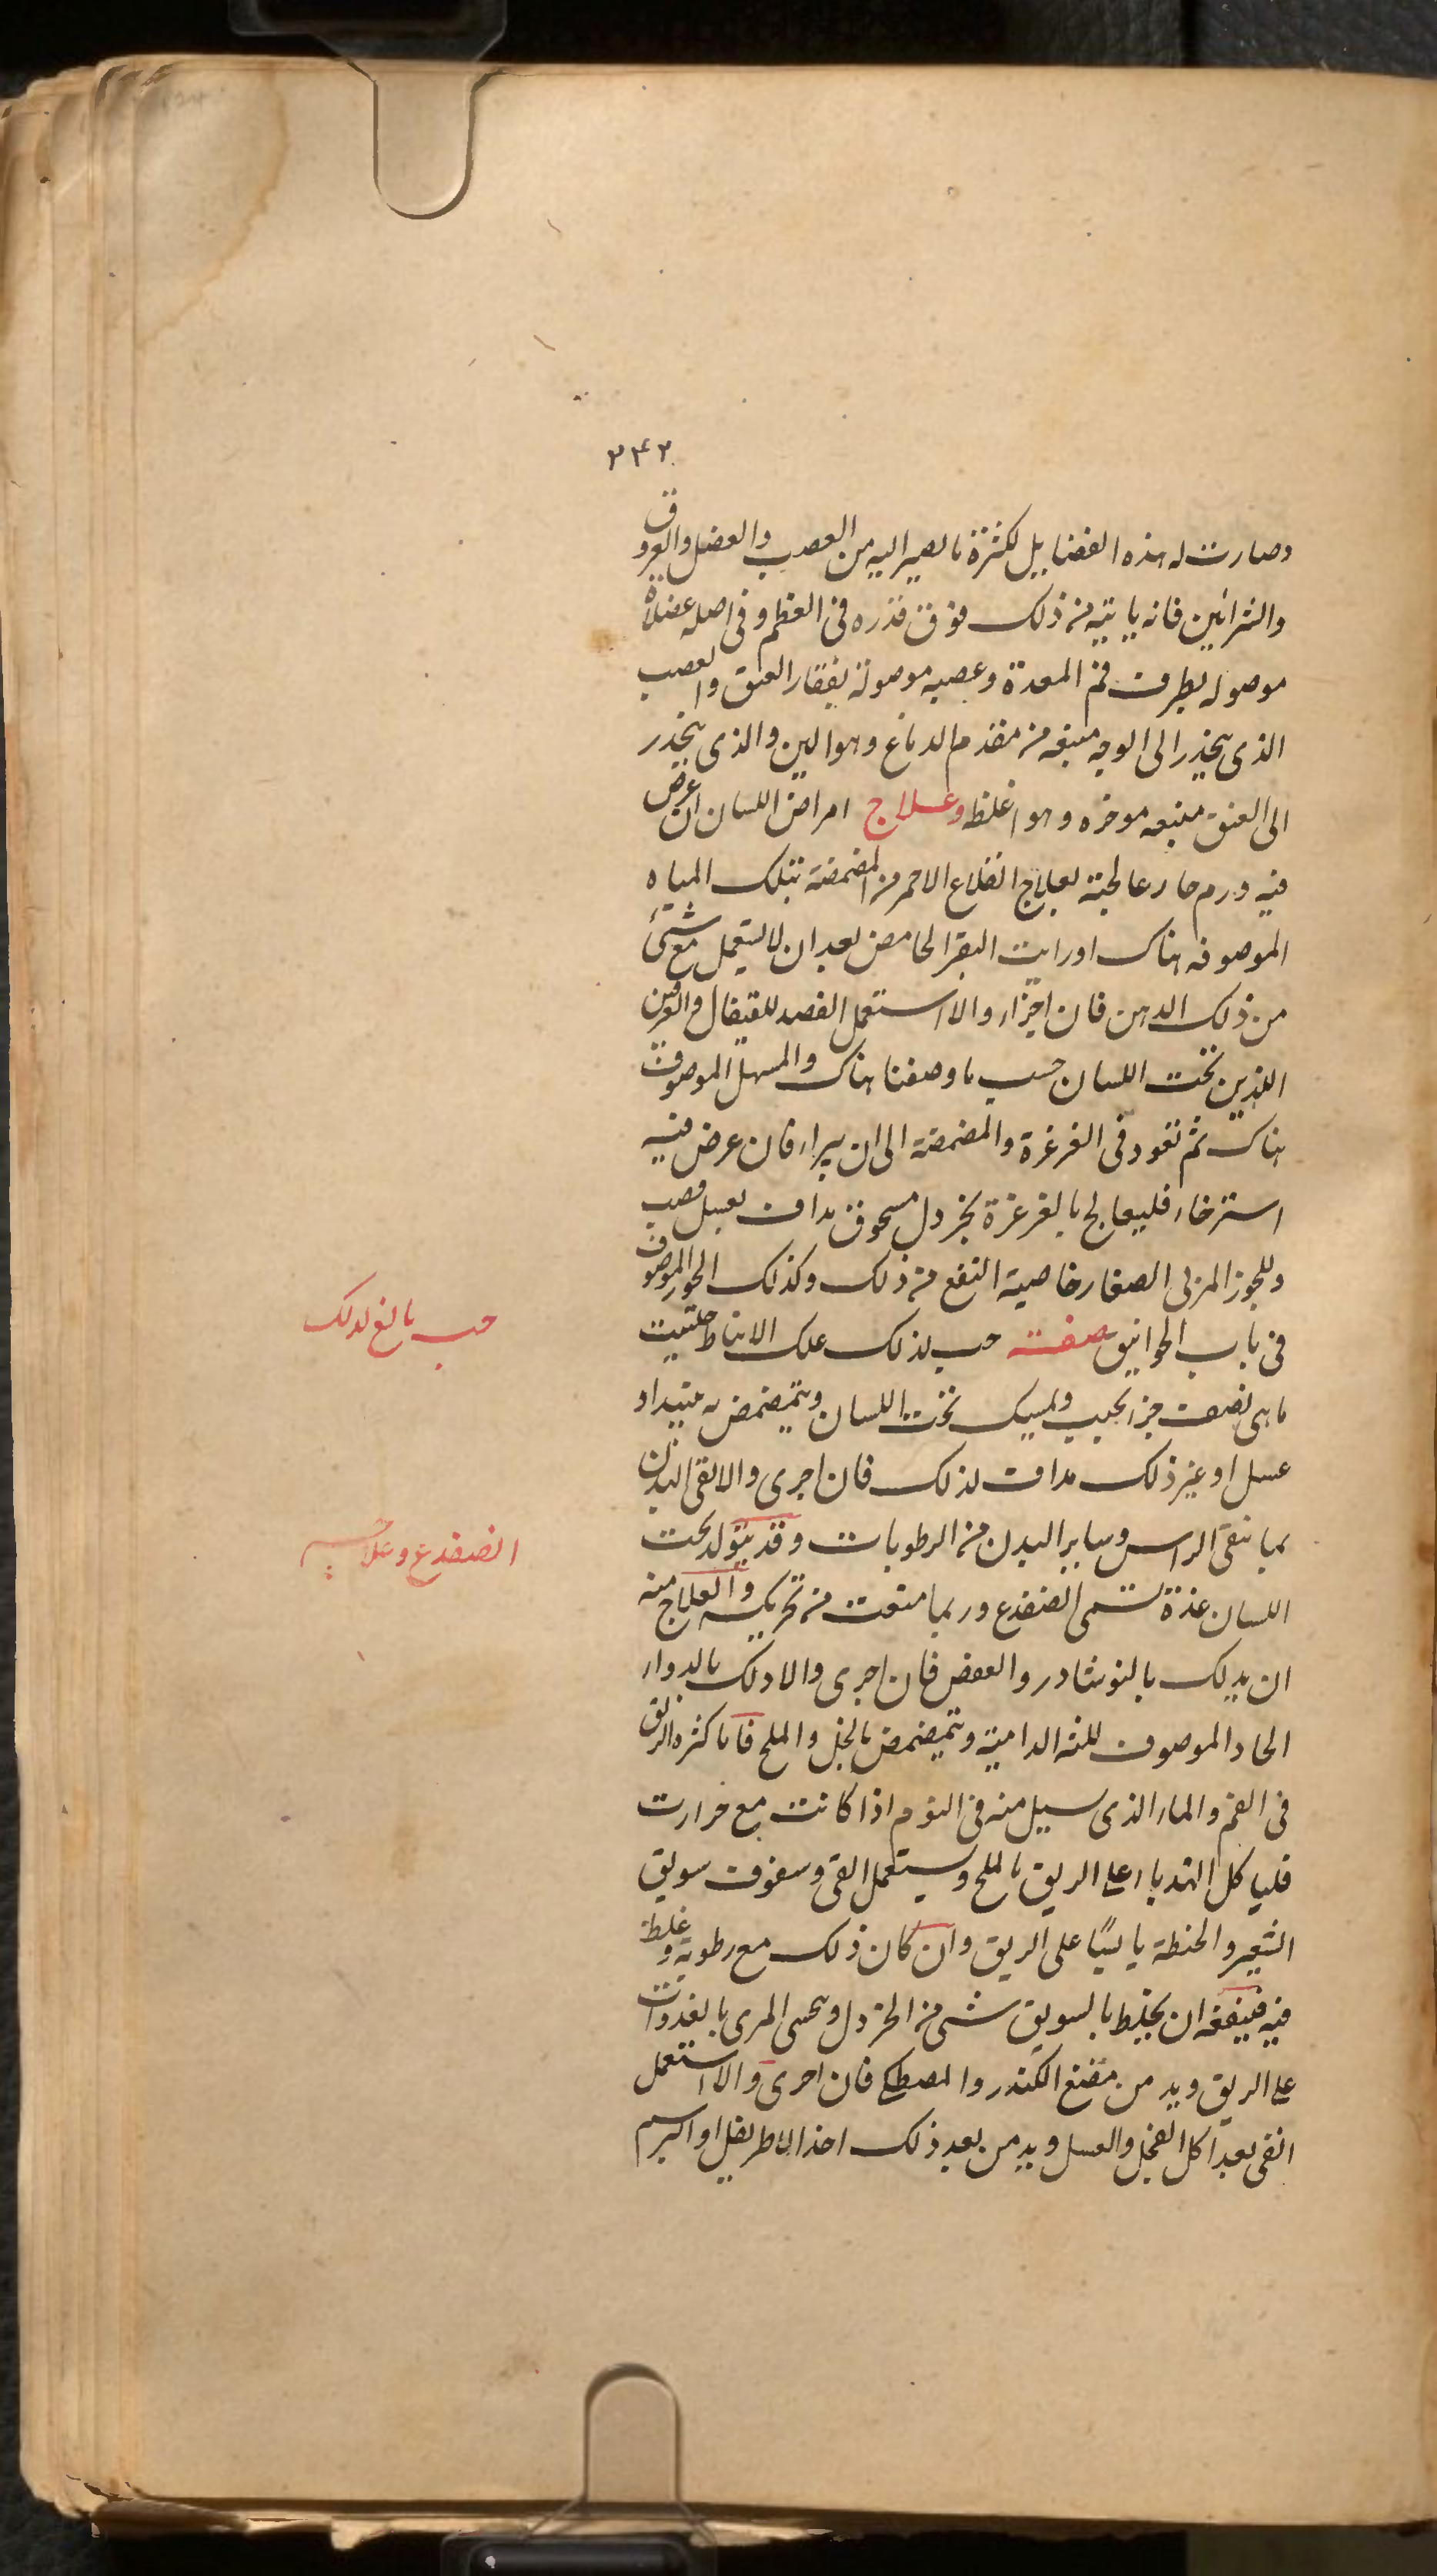 ۲۴۲
وصارت له هذه الفضايل لكثرة ما يصير اليه من العصب والعضل والعروق
والشرائين فانه ياتيه من ذلك فوق قدره فى العظم وفى اصله عضلة
موصوله بطرف فم المعدة وعصبه موصولة بفقار العنق والعصب
الذى ينحدر الى الوجه منبعه من مقدم الدماغ وهو الين والذى ينحدر
الى العنق منبعه موخره وهو اغلظ وعلاج امراض اللسان ان عرض
فيه ورم حار عالجته بعلاج القلاع الاحمر من المضمضة بتلك المياه
الموصوفه هناك او رايت البقر الحامض بعد ان لا يستعمل مع شئ
من ذلك الدهن فان اجزاء والا استعمل الفصد للقيفال والعرقين
اللذين تحت اللسان حسب ما وصفنا هناك والمسهل الموصوف
هناك ثم تعود فى الغرغرة والمضمضة الى ان يبراء فان عرض فيه
استرخاء فليعالج بالغرغرة بخردل مسحوق مداف بعسل قصب
وللجوز المربى الصغار خاصية النفع من ذلك وكذلك الجوز الموصوف
فى باب الخوانيق صفته حب لذلك علك الانباط حلتيت
ماهى نصف جزء يحبب ويمسك تحت اللسان ويتمضمض به بنبيذ او
عسل او غير ذلك مداف لذلك فان اجرى والا نقى البدن
بما ينقى الراس وساير البدن من الرطوبات وقد يتولد تحت
اللسان غدة تسمى الضفدع وربما منعت من تحريكه والعلاج منه
ان يدلك بالنوشادر والعفص فان اجرى والا دلك بالدواء
الحاد الموصوف للثه الدامية ويتمضمض بالخل والملح فاما كثره الريق
فى الفم والماء الذى يسيل منه فى النوم اذا كانت مع حرارت
فلياكل الهندباء على الريق بالملح ويستعمل القى وسفوف سويق
الشعير والحنطة يابسًا على الريق وان كان ذلك مع رطوبة وغلظ
فيه فينفعه ان يخلط بالسويق شئ من الخردل ويحسى المرى بالغدوات
على الريق ويدمن مضغ الكندر والمصطكى فان اجرى والا استعمل
القى بعد اكل الفجل والعسل ويدمن بعد ذلك اخذ الاطريفل او
حب بالغ لذلك
الضفدع وعلاجه